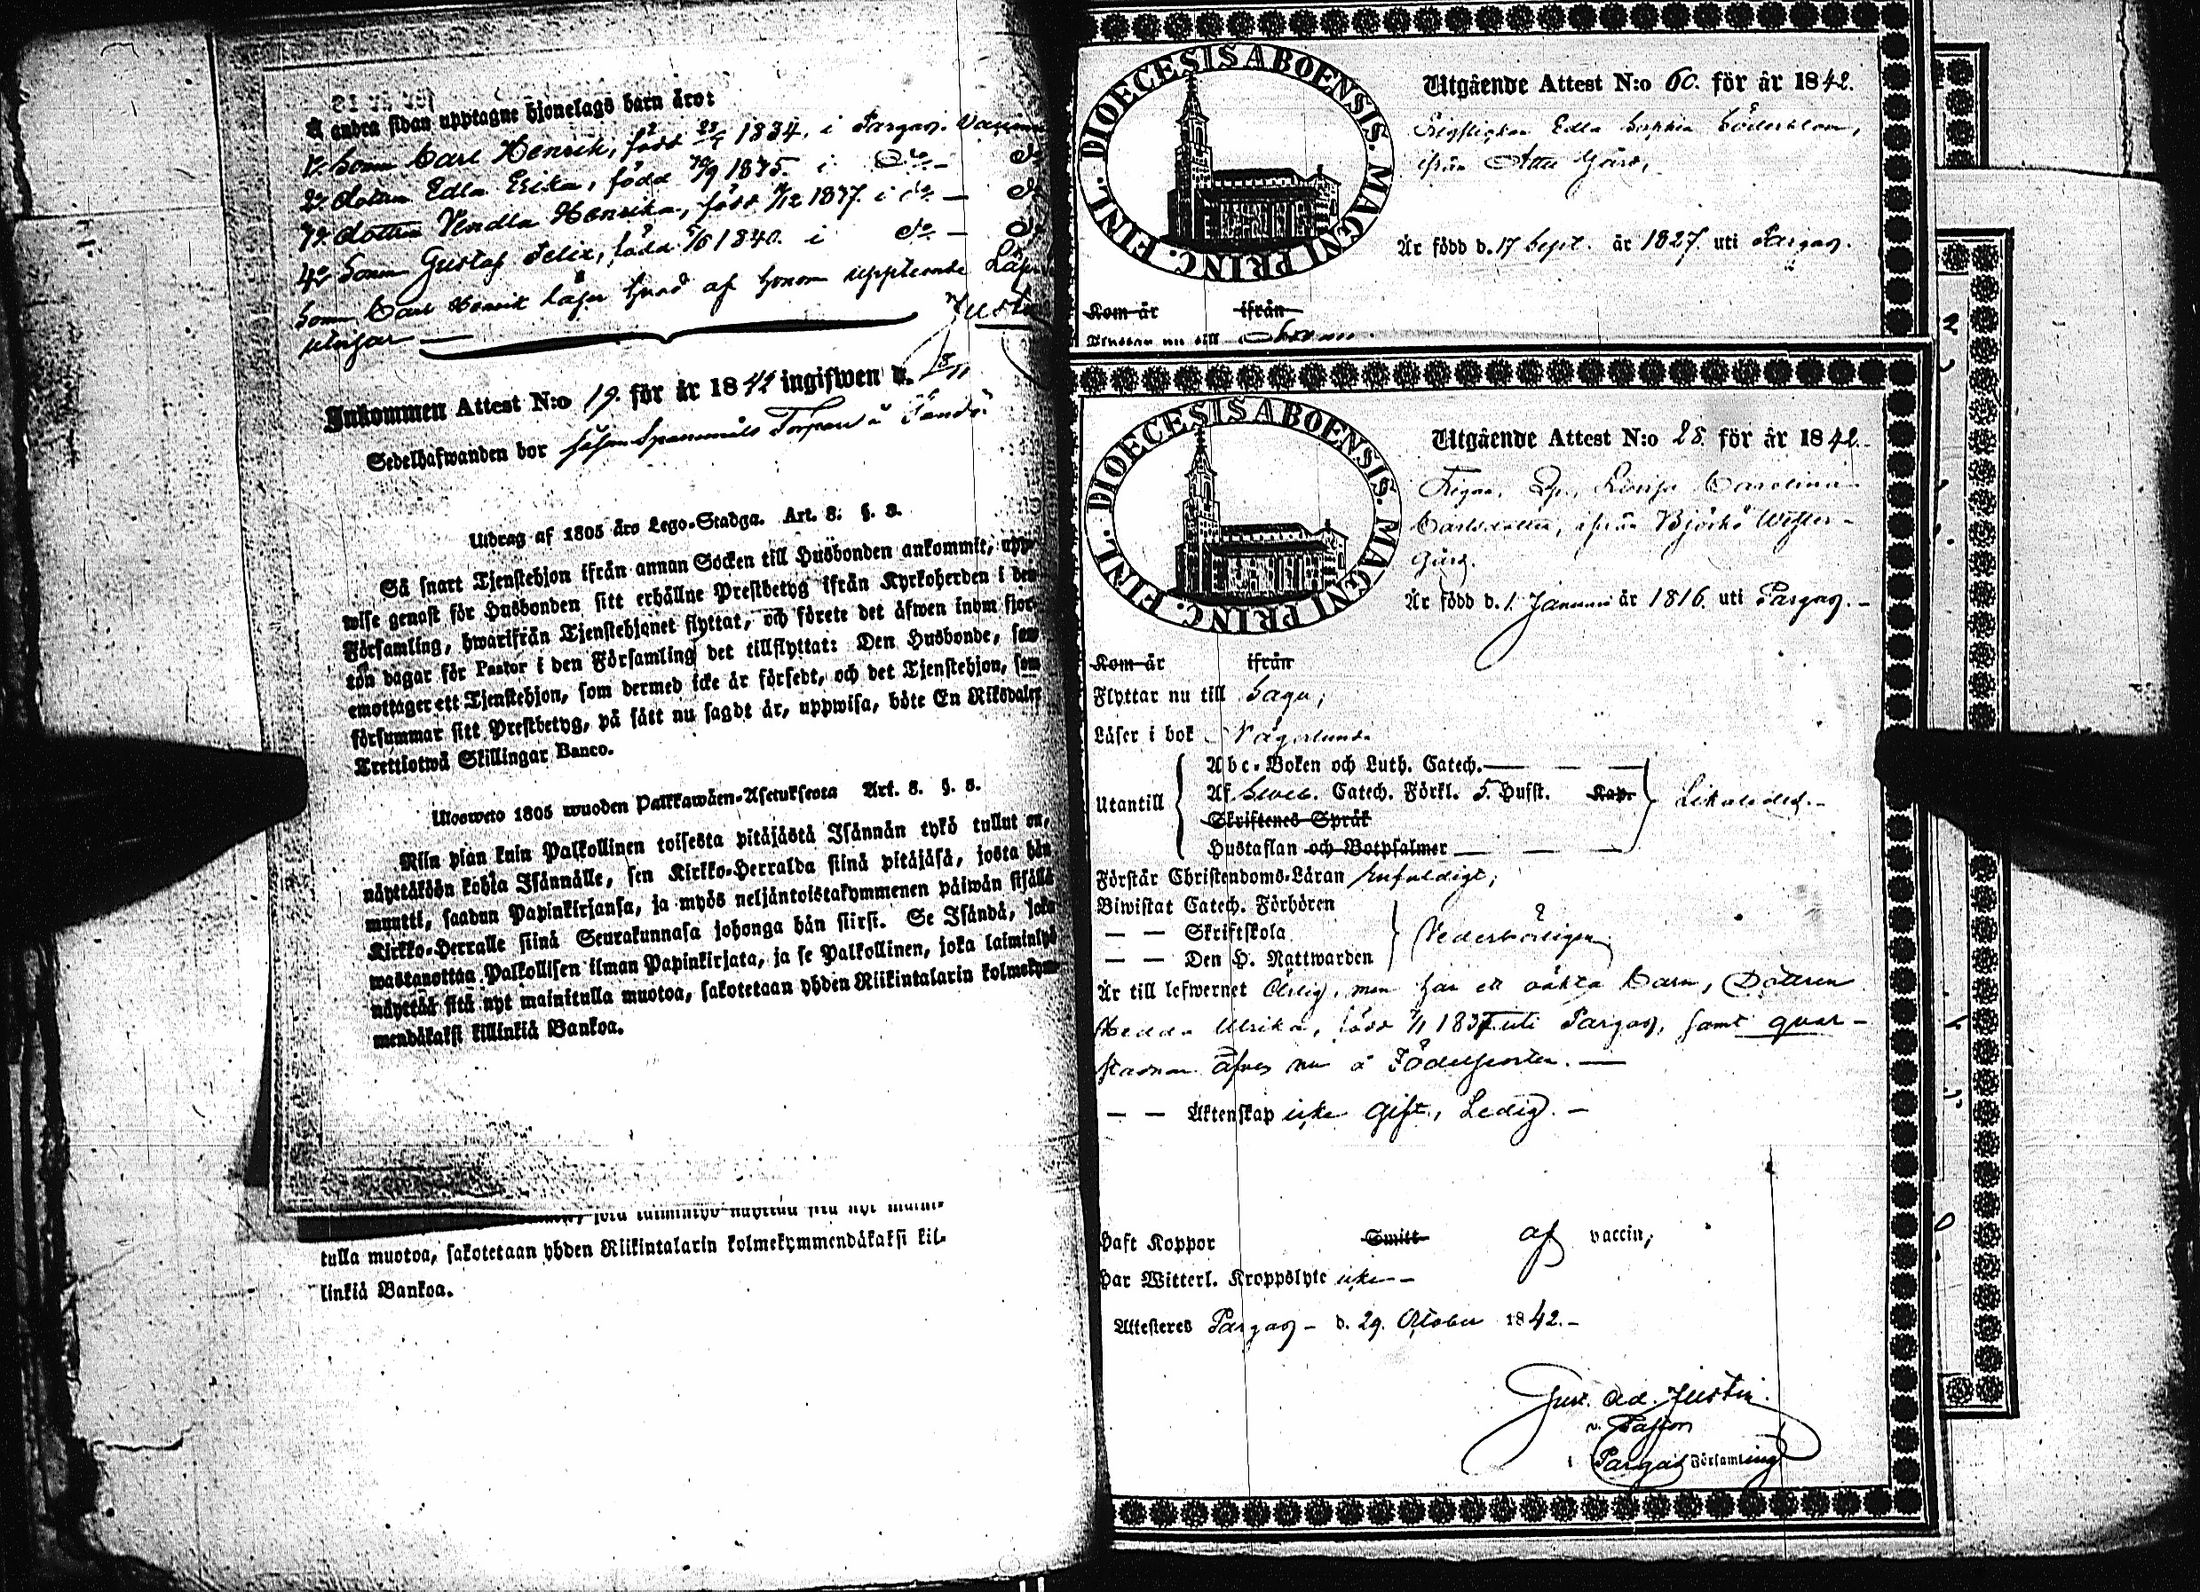 Å andra sidan upptagne hjonelags barn äro:
1o Sonn Carl Henrik, född 1834. i Pargas.
2o Dottren Edla Erika, född i Do
Dottren Vendla Henrika, född 1837. i do
4o Sonn Gustaf Felix, född 1840. i do
Sonn Carl Henrik läser hvad af honom
Inkommen Attest N:o 19. för år 1842 ingifwen d.
Sedelhafwanden bor
Utdrag af 1805 års Lego-Stadga. Art. 8. §. 8.
Så snart Tjenstehjon ifrån annan Socken till Husbonden ankommit, upp-
wise genast för Husbonden sitt erhållne Prestbetyg ifrån Kyrkoherden i den
Församling, hwarifrån Tjenstehjonet flyttat, och förete det äfwen inom fjor-
ton dagar för Pastor i den Församling det tillflyttat: Den Husbonde, som
emottager ett Tjenstehjon, som dermed icke är försedt, och det Tjenstehjon, som
försummar sitt Prestbetyg, på sätt nu sagdt är, uppwisa, böte En Riksdaler
Trettiotwå Skillingar Banco.
Uloswetö 1805 wuoden Palkkawäen-Asetuksesta Art. 8. §. 8.
Niin pian kuin Palkollinen toisesta pitäjästä Isännän tykö tullut on,
näyttäköön kohta Isännälle, sen Kirkko-Herralda siinä pitäjäsä, josta hän
muutti, saadun Papinkirjansa, ja myös neljäntoistakymmenen päiwän sisällä
Kirkko-Herralle siinä Seurakunnasa johonga hän siirsi. Se Isändä, joka
wastanottaa Palkollisen ilman Papinkirjata, ja se Palkollinen, joka laiminlyö
näyttää sitä nyt mainitulla muotoa, sakotetaan yhden Riikintalarin kolmekym-
mendäkaksi killinkiä Bankoa.
tulla muotoa, sakotetaan yhden Riikintalarin kolmekymmendäkaksi kil-
linkiä Bankoa.
DIOECESIS ABOENSIS. MAGNI PRINC. FINL.
Utgående Attest N:o 60. för år 1842.
Pigflickan Edla Sophia Söderblom,
ifrån Attu Gård,
Är född d. 17 Sept. år 1827. uti Pargas.
Kom år ifrån
Flyttar nu till
DIOECESIS ABOENSIS. MAGNI PRINC. FINL.
Utgående Attest N:o 28. för år 1842.
Pigan, Lovisa Carolina
Carlsdotter, ifrån Björkö Wester-
gård.
Är född d. 1. Januarii år 1816. uti Pargas.
Kom år ifrån
Flyttar nu till Sagu;
Läser i bok Någorlunda
Utantill
Abc-Boken och Luth. Catech.
Af Sveb. Catech. Förkl. 5. Hufst. Kap.
Skriftenes Språk
Hustaflan och Botpsalmer
Likaledes.
Förstår Christendoms-Läran enfaldigt;
Biwistat Catech. Förhören
— — Skriftskola
— — Den H. Nattwarden
Vederbörligen
Är till lefwernet Ärlig, men har ett oäkta barn, Dottren
Hedda Ulrika, född 1837 uti Pargas, samt quar-
stannar äfven nu å Födelseorten.
— — Äktenskap icke Gift, Ledig.
Haft Koppor Smitt af vaccin;
Har Witterl. Kroppslyte icke
Attesteres Pargas d. 29. October 1842.
Gust. Ad. Justin.
v. Pastor
i Pargas Församling